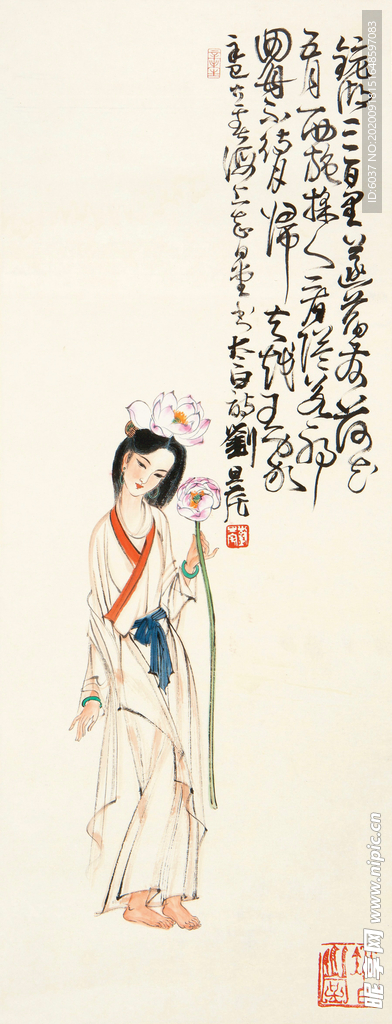 鏡湖三百里菡萏發荷花
五月西施採人看隘若耶
回舟不待月歸去越王家
辛巳 海上 書太白詩劉旦宅
ID:6037 NO:20200918151648597083
昵享网 www.nipic.cn